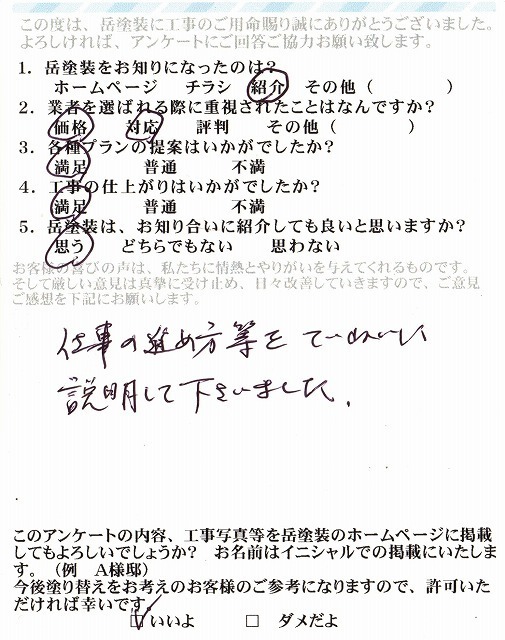 この度は、岳塗装に工事のご用命賜り誠にありがとうございました。
よろしければ、アンケートにご回答ご協力お願い致します。
1．岳塗装をお知りになったのは？
ホームページ　チラシ　紹介　その他（　　　　）
2．業者を選ばれる際に重視されたことはなんですか？
価格　対応　評判　その他（　　　　）
3．各種プランの提案はいかがでしたか？
満足　普通　不満
4．工事の仕上がりはいかがでしたか？
満足　普通　不満
5．岳塗装は、お知り合いに紹介しても良いと思いますか？
思う　どちらでもない　思わない
お客様の喜びの声は、私たちに情熱とやりがいを与えてくれるものです。
そして厳しい意見は真摯に受け止め、日々改善していきますので、ご意見
ご感想を下記にお願いします。
仕事の進め方等をていねいに
説明して下さいました。
このアンケートの内容、工事写真等を岳塗装のホームページに掲載
してもよろしいでしょうか？　お名前はイニシャルでの掲載にいたしま
す。（例　A様邸）
今後塗り替えをお考えのお客様のご参考になりますので、許可いた
だければ幸いです。
☑ いいよ　□ ダメだよ